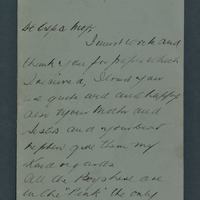 I must write and
thank you for paper which
I received, I trust you
are quite well and happy
also your Mother and
Sister and your
nephew give them my
kind regards
All the Boys here are
in the "Pink" the only